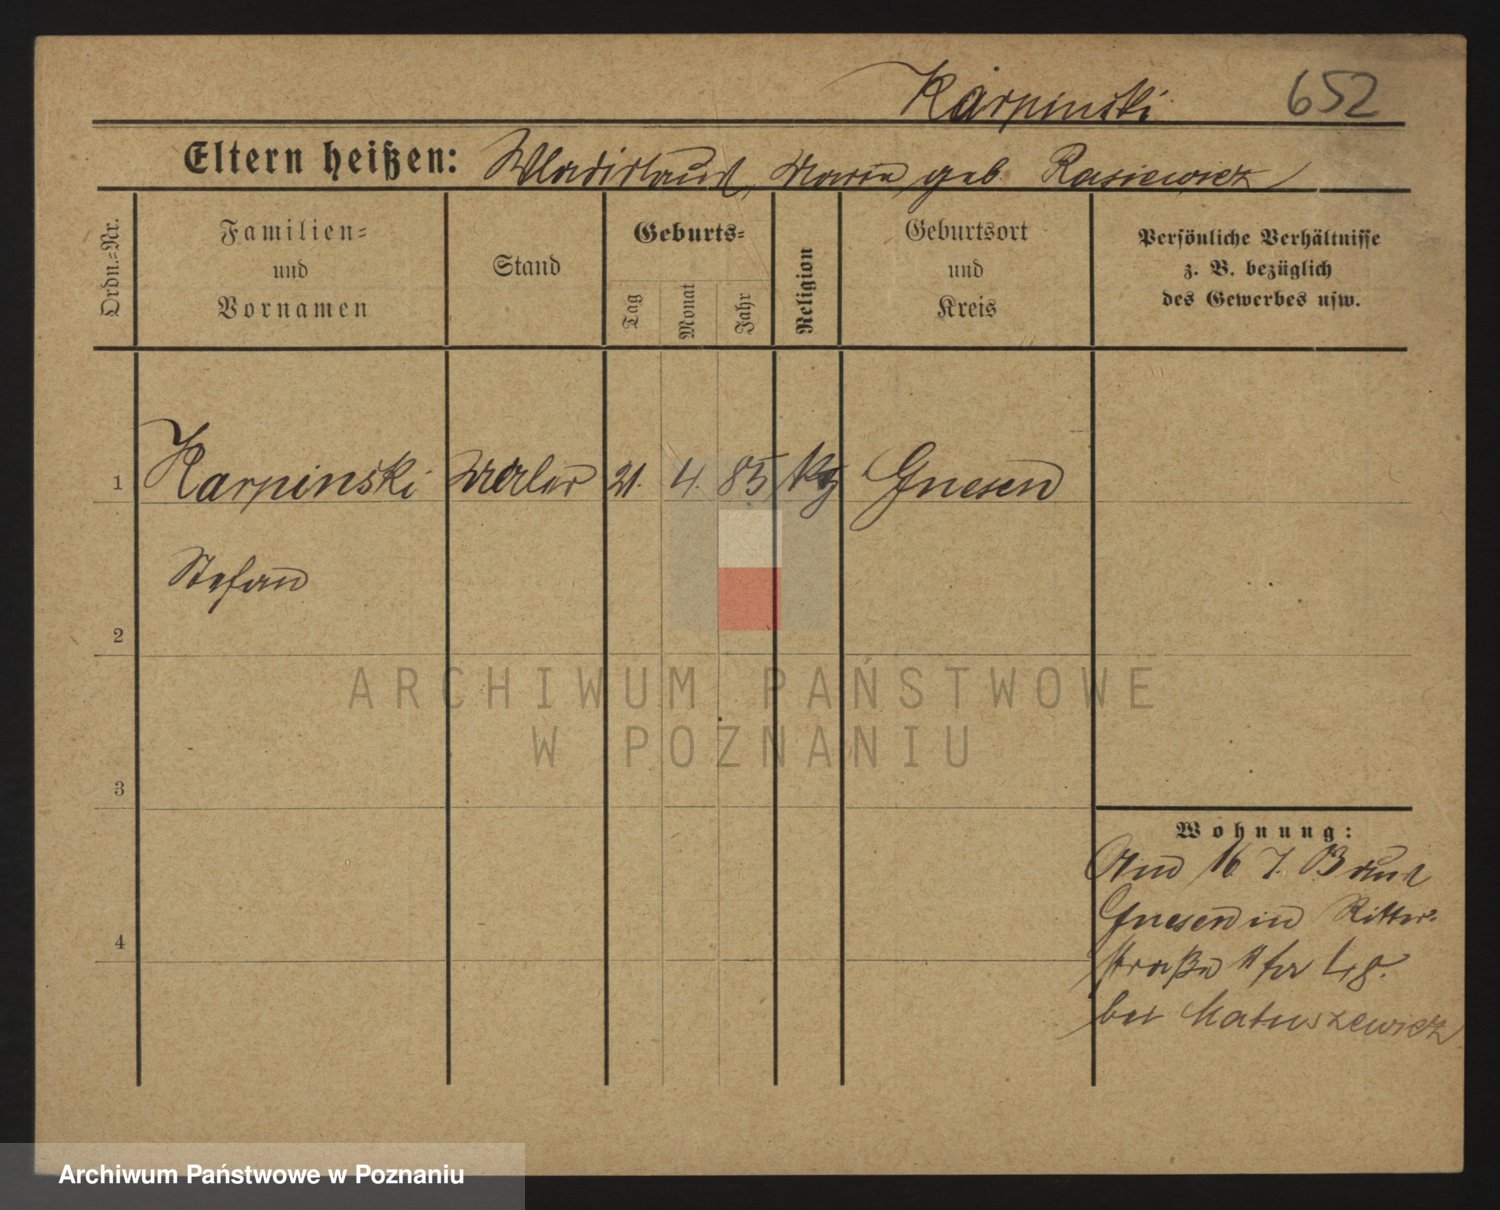 Karpinski 652
Eltern heißen: Wladislaus, Maria geb. Rasiewicz
Ordn.-Nr.
Familien-
und
Vornamen
Stand
Geburts-
Tag
Monat
Jahr
Religion
Geburtsort
und
Kreis
Persönliche Verhältnisse
z. B. bezüglich
des Gewerbes usw.
1 Karpinski Maler 21. 4. 85 Gnesen
Stefan
2
ARCHIWUM PAŃSTWOWE
W POZNANIU
3
Wohnung:
16 7. 03
Gnesen in Ritter-
straße 11
4
bei Matuszewicz
Archiwum Państwowe w Poznaniu